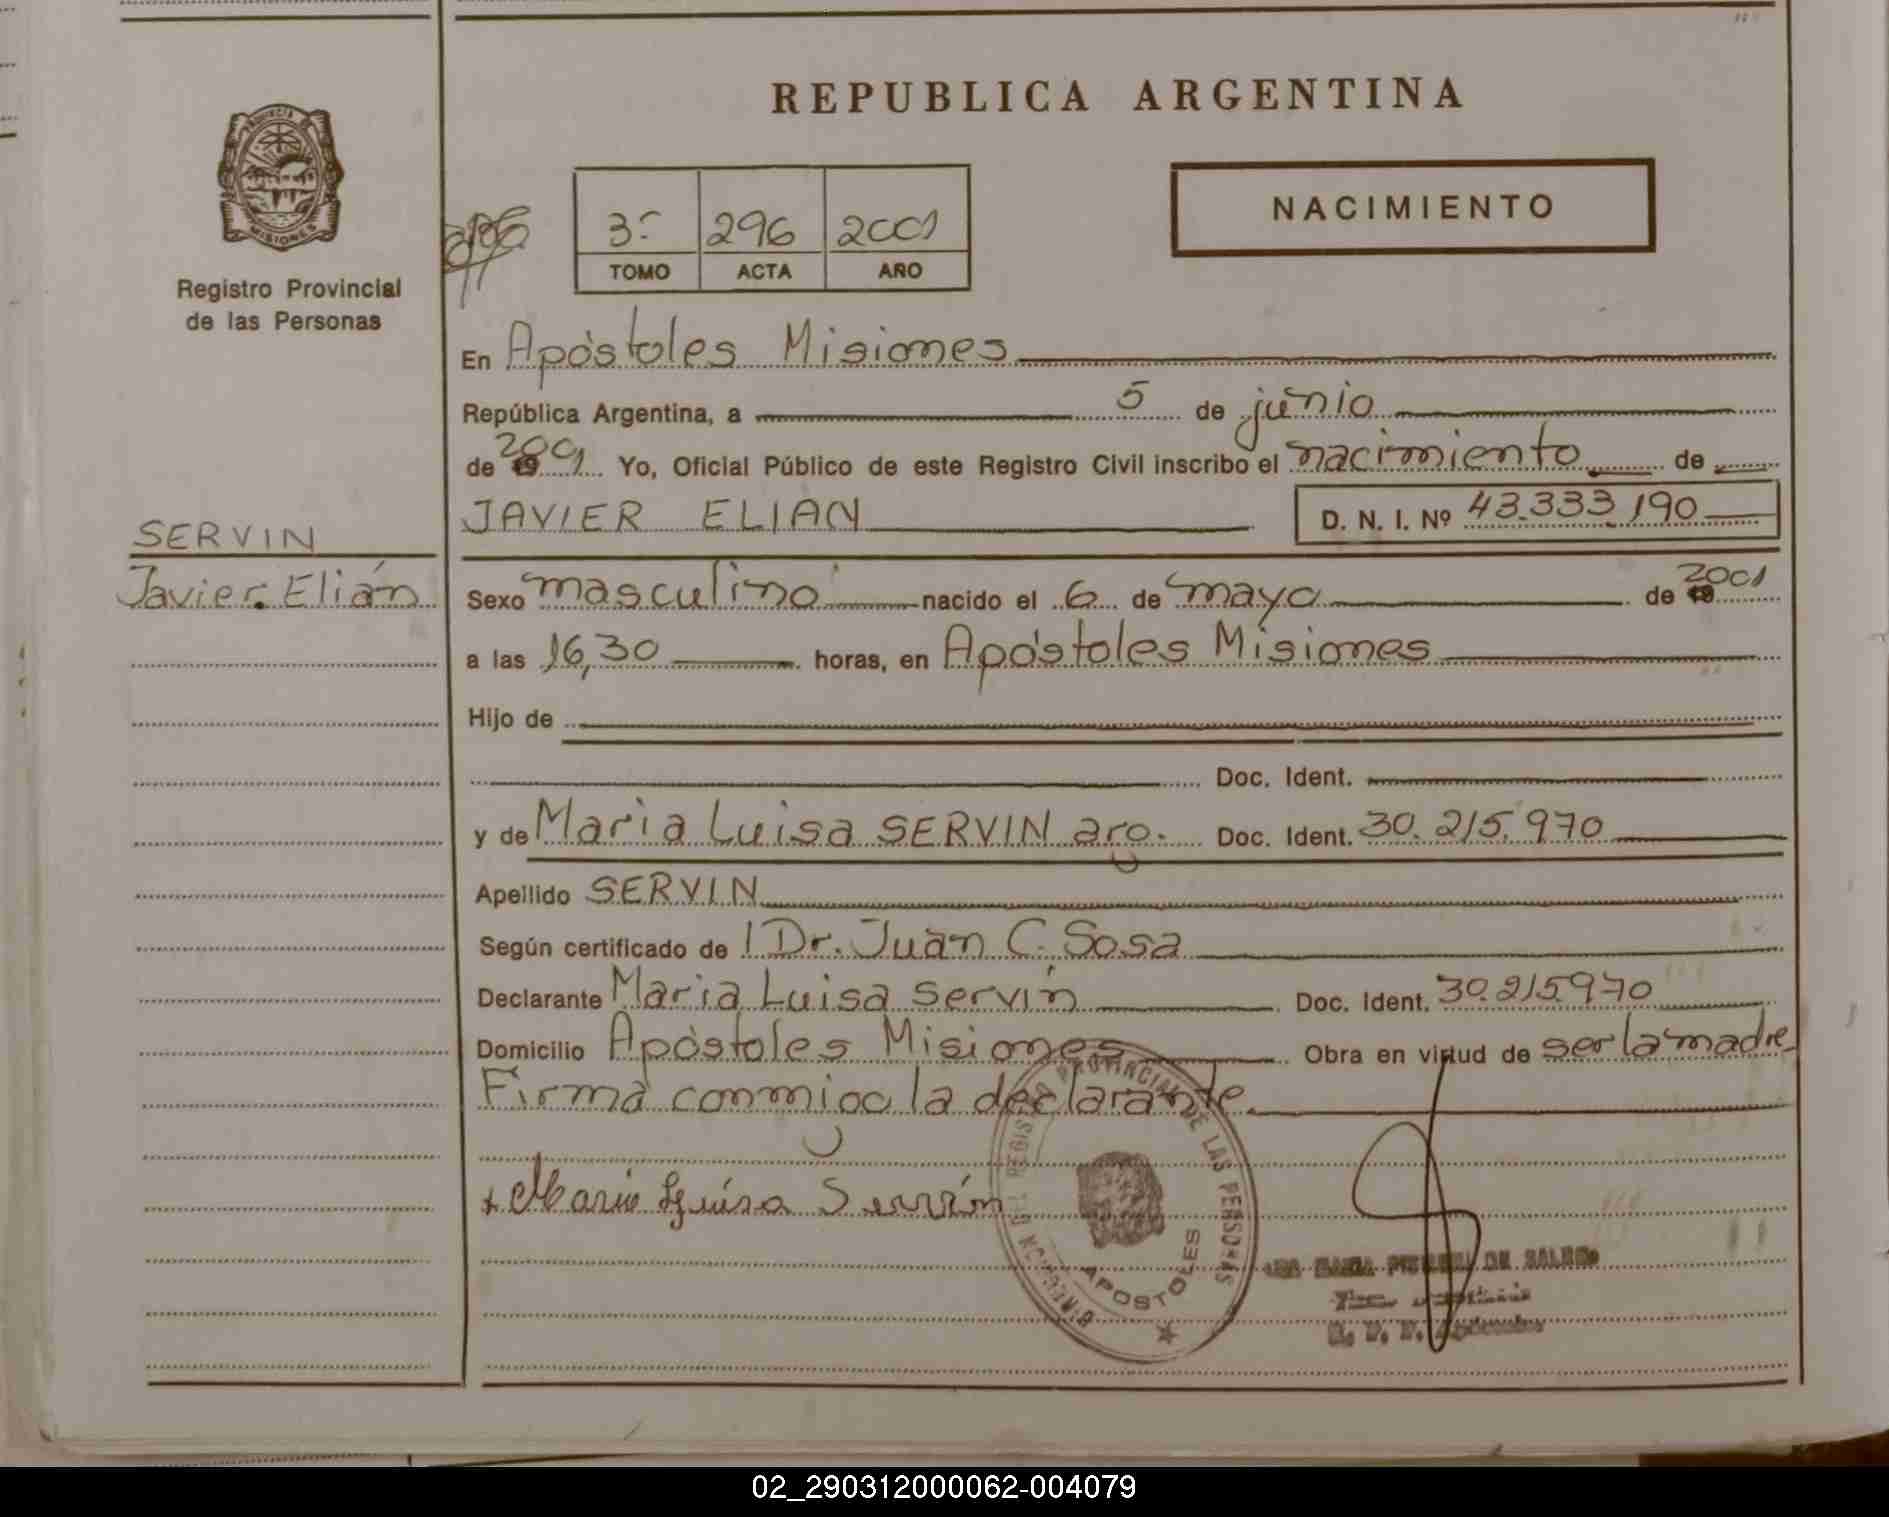 REPUBLICA ARGENTINA
PROVINCIA
MISIONES
Registro Provincial
de las Personas
3º 296 2001
TOMO ACTA AÑO
NACIMIENTO
En Apóstoles Misiones
República Argentina, a 5 de junio
de 2001 Yo, Oficial Público de este Registro Civil inscribo el nacimiento de
JAVIER ELIAN D. N. I. Nº 43.333.190
SERVIN
Javier Elián
Sexo masculino nacido el 6 de mayo de 2001
a las 16,30 horas, en Apóstoles Misiones
Hijo de
Doc. Ident.
y de Maria Luisa SERVIN arg. Doc. Ident. 30.215.970
Apellido SERVIN
Según certificado de Dr. Juan C. Sosa
Declarante Maria Luisa Servín Doc. Ident. 30.215970
Domicilio Apóstoles Misiones Obra en virtud de ser la madre
Firma conmigo la declarante
Maria Luisa Servín
REGISTRO PROVINCIAL DE LAS PERSONAS
APOSTOLES
02_290312000062-004079